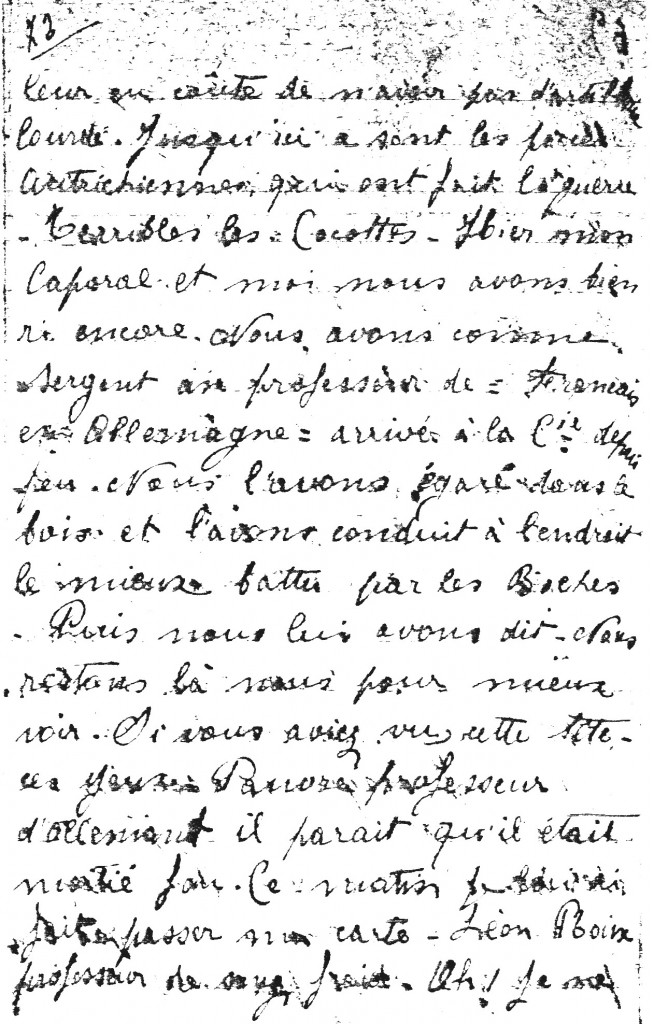 73
leur en coûte de n'avoir pas d'artillerie
lourde. Jusqu'ici ce sont les pièces
Autrichiennes qui ont fait la guerre
- Terribles les = Cocottes - Hier mon
Caporal et moi nous avons bien
ri encore. Nous avons comme
sergent un professeur de = Francais
en Allemagne = arrivé à la Cie depuis
peu. Nous l'avons égaré dans le
bois et l'avons conduit à l'endroit
le mieux battu par les Boches
- Puis nous lui avons dit - Nous
restons là nous pour mieux
voir. Si vous aviez vu cette tête -
ces yeux - Pauvre professeur
d'allemand il parait qu'il était
moitié fou. Ce matin je lui ai
fait passer ma carte - Léon Boix
professeur de sang froid. Oh! Je ne